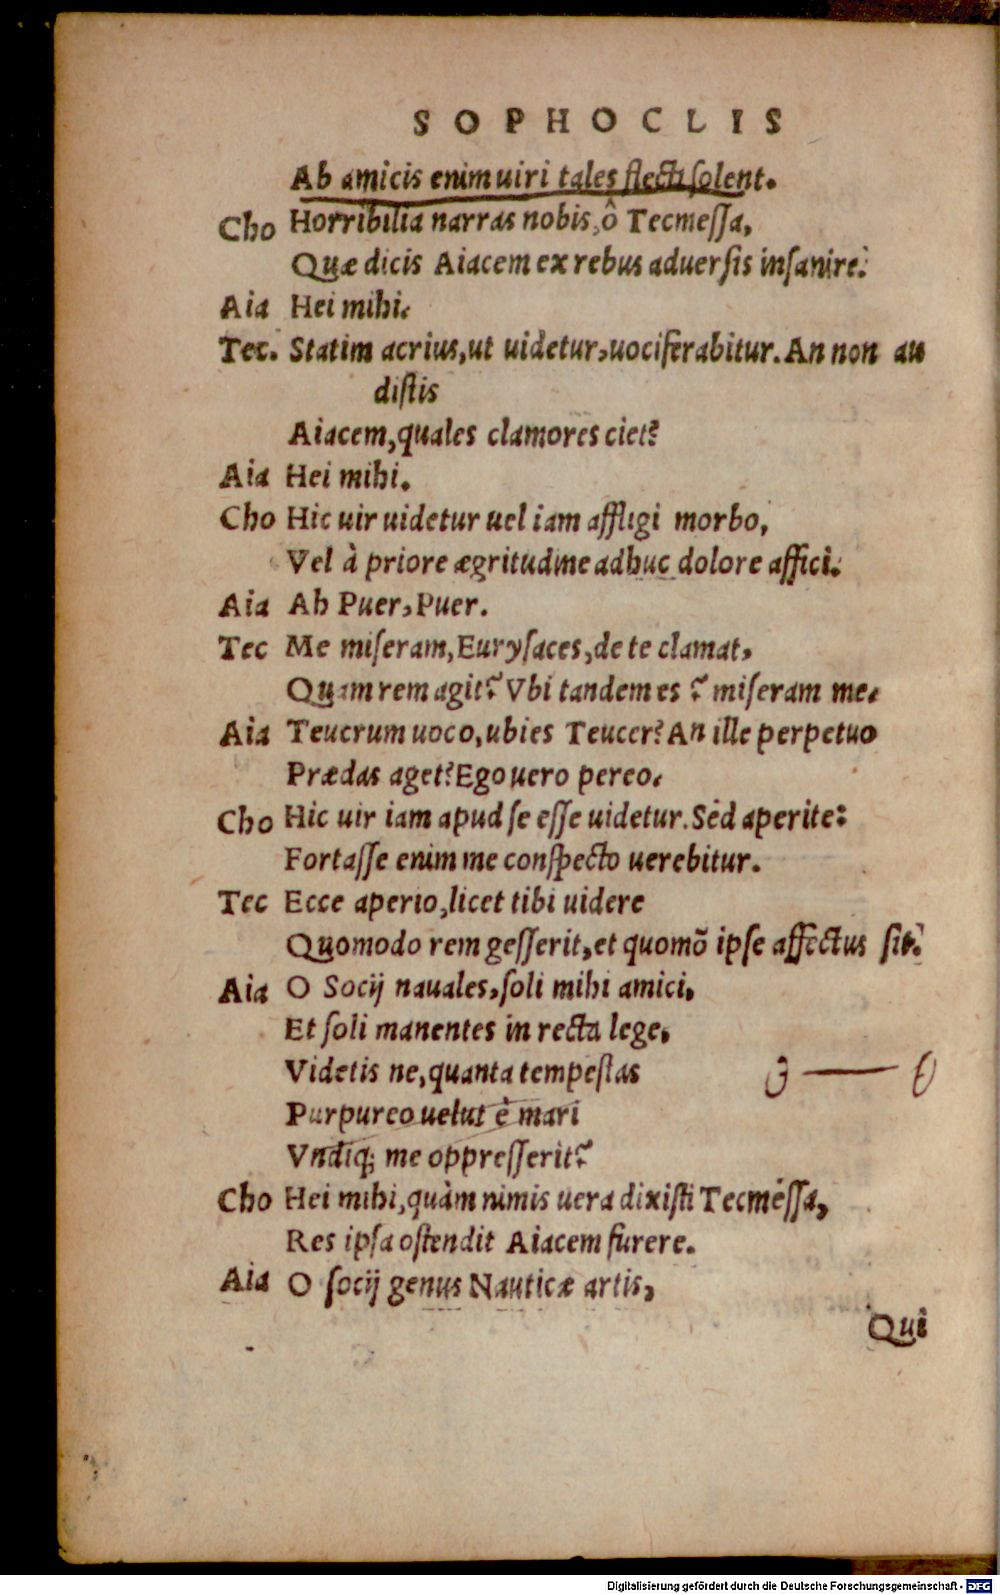 SOPHOCLIS
Ab amicis enim uiri tales flecti solent.
Cho Horribilia narras nobis, ô Tecmessa,
Quæ dicis Aiacem ex rebus aduersis insanire.
Aia Hei mihi.
Tec. Statim acrius, ut uidetur, uociferabitur. An non au
distis
Aiacem, quales clamores ciet?
Aia Hei mihi.
Cho Hic uir uidetur uel iam affligi morbo,
Vel à priore ægritudine adhuc dolore affici.
Aia Ah Puer, Puer.
Tec Me miseram, Eurysaces, de te clamat,
Quam rem agit? Vbi tandem es? miseram me.
Aia Teucrum uoco, ubi es Teucer? An ille perpetuo
Prædas aget? Ego uero pereo.
Cho Hic uir iam apud se esse uidetur. Sed aperite:
Fortasse enim me conspecto uerebitur.
Tec Ecce aperio, licet tibi uidere
Quomodo rem gesserit, et quomõ ipse affectus sit.
Aia O Socij nauales, soli mihi amici,
Et soli manentes in recta lege,
Videtis ne, quanta tempestas
Purpureo uelut è mari
Vndiq; me oppresserit?
Cho Hei mihi, quàm nimis uera dixisti Tecmessa,
Res ipsa ostendit Aiacem furere.
Aia O socij genus Nauticæ artis,
Qui
Digitalisierung gefördert durch die Deutsche Forschungsgemeinschaft - DFG